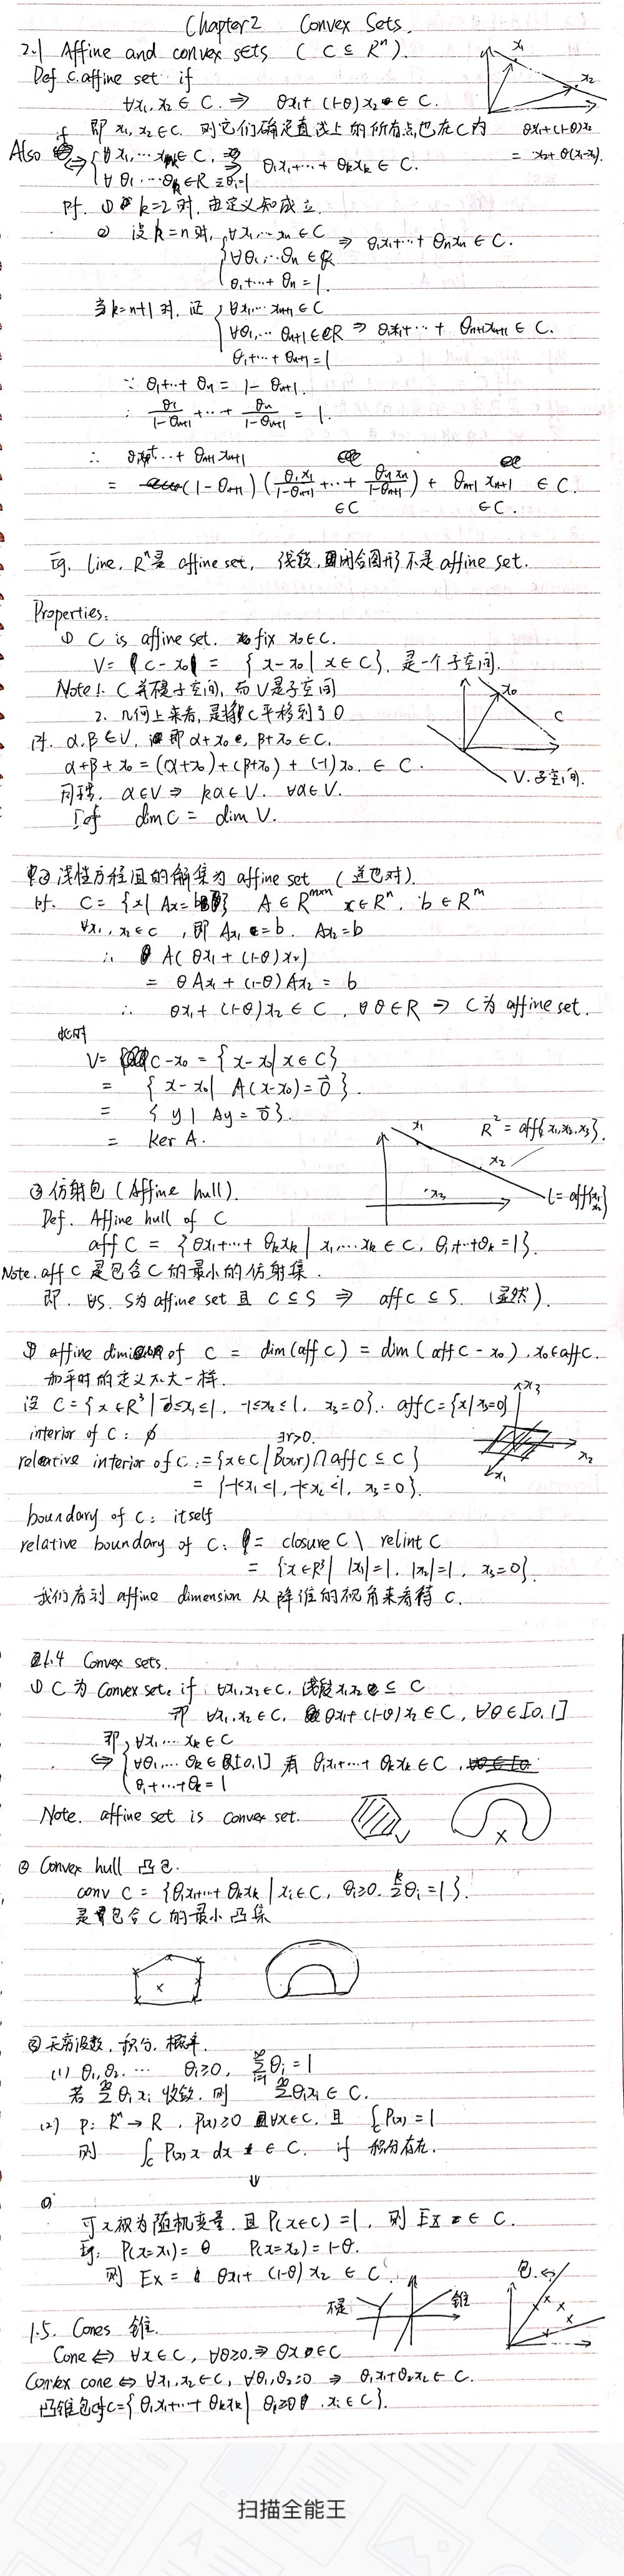 Chapter 2 Convex Sets.
2.1 Affine and convex sets ( C ⊆ Rⁿ ).
Def C. affine set if
∀x₁, x₂ ∈ C. ⇒ θx₁ + (1-θ) x₂ ∈ C.
即 x₁, x₂ ∈ C. 则它们确定直线上的所有点也在C内
x₁
x₂
θx₁+(1-θ)x₂
= x₂ + θ(x₁-x₂).
Also ⇔ { ∀ x₁, … xₖ ∈ C, ∀ θ₁ … θₖ ∈ R Σθᵢ=1 θ₁x₁+…+ θₖxₖ ∈ C.
Pf. ① k=2 时, 由定义知成立.
② 设 k=n时, ∀x₁, … xₙ ∈ C ⇒ θ₁x₁+…+ θₙxₙ ∈ C.
∀θ₁, … θₙ ∈ R
θ₁+…+ θₙ = 1.
当k=n+1 时. 证 ∀x₁, … xₙ₊₁ ∈ C
∀θ₁, … θₙ₊₁ ∈ R ⇒ θ₁x₁+…+ θₙ₊₁xₙ₊₁ ∈ C.
θ₁+…+ θₙ₊₁ = 1
∵ θ₁+…+ θₙ = 1 - θₙ₊₁.
∴ θ₁/(1-θₙ₊₁) +…+ θₙ/(1-θₙ₊₁) = 1.
∴ θ₁x₁+…+ θₙ₊₁xₙ₊₁
= (1-θₙ₊₁) (θ₁x₁/(1-θₙ₊₁) +…+ θₙxₙ/(1-θₙ₊₁)) + θₙ₊₁ xₙ₊₁ ∈ C.
∈C ∈C.
Eg. line, Rⁿ是 affine set, 线段, 闭合图形不是 affine set.
Properties:
① C is affine set. fix x₀∈C.
V = C - x₀ = { x-x₀ | x ∈ C }, 是一个子空间.
Note 1. C 并不是子空间, 而 V是子空间
2. 几何上来看, 是将C平移到了0
x₀
C
V. 子空间.
Pf. α,β ∈V, 即 α+x₀, β+x₀ ∈ C.
α+β+x₀ = (α+x₀)+(β+x₀) + (-1)x₀ ∈ C.
同理. α∈V ⇒ kα∈V. ∀α∈V.
Def dim C = dim V.
② 线性方程组的解集为 affine set (逆也对).
Pf. C = {x| Ax=b} A∈R^{m×n} x∈Rⁿ. b∈R^m
∀x₁, x₂∈C, 即 Ax₁=b. Ax₂=b
∴ A(θx₁ + (1-θ)x₂)
= θAx₁ + (1-θ)Ax₂ = b
∴ θx₁+ (1-θ)x₂ ∈ C, ∀θ∈R ⇒ C为 affine set.
此时
V = C-x₀ = { x-x₀| x∈C }
= { x-x₀| A(x-x₀)=0⃗ }.
= { y | Ay = 0⃗ }.
= ker A.
x₁
x₂
x₃
R² = aff{x₁,x₂,x₃}.
L = aff{x₁,x₂}
③ 仿射包 (Affine hull).
Def. Affine hull of C
aff C = { θ₁x₁+…+ θₖxₖ | x₁, … xₖ ∈ C, θ₁+…+θₖ=1 }.
Note. aff C 是包含C的最小的仿射集.
即. ∀S. S为 affine set 且 C⊆S ⇒ aff C ⊆ S. (显然).
④ affine dimension of C = dim(aff C) = dim (aff C - x₀), x₀∈aff C.
和平时的定义不大一样.
设 C = {x∈R³ | -1≤x₁≤1, -1≤x₂≤1, x₃=0}. aff C={x|x₃=0}
interior of C: ∅
∃r>0.
relative interior of C := {x∈C | B(x,r)∩aff C ⊆ C }
= {-1<x₁<1, -1<x₂<1, x₃=0}.
x₃
x₂
x₁
boundary of C: itself
relative boundary of C: = closure C \ relint C
= {x∈R³| |x₁|=1, |x₂|=1, x₃=0}.
2.1.4 Convex sets.
① C为 Convex set. if ∀x₁,x₂∈C, 线段x₁x₂ ⊆ C
即 ∀x₁,x₂∈C, θx₁+ (1-θ)x₂ ∈C, ∀θ∈[0,1]
即 ∀x₁, … xₖ∈C
⇔ ∀θ₁, … θₖ∈[0,1] 有 θ₁x₁+…+ θₖxₖ∈C
θ₁+…+θₖ=1
Note. affine set is convex set.
② Convex hull 凸包.
conv C = {θ₁x₁+…+ θₖxₖ | xᵢ∈C, θᵢ≥0. Σθᵢ=1}.
是包含C的最小凸集
③ 无穷级数, 积分, 概率.
(1) θ₁,θ₂. … θᵢ≥0, Σθᵢ=1
若 Σθᵢxᵢ 收敛. 则 Σθᵢxᵢ∈C.
(2) P: Rⁿ→R, P(x)≥0 ∀x∈C, 且 ∫_C P(x) = 1
则 ∫_C P(x) x dx ∈ C. if 积分存在.
⇓
可x视为随机变量. 且 P(x∈C)=1, 则 Ex ∈ C.
Eg: P(x=x₁)=θ P(x=x₂)=1-θ.
则 Ex = θx₁+ (1-θ)x₂ ∈ C.
锥
包
1.5. Cones 锥.
Cone ⇔ ∀x∈C, ∀θ≥0. ⇒ θx∈C
Convex cone ⇔ ∀x₁,x₂∈C, ∀θ₁,θ₂≥0 ⇒ θ₁x₁+θ₂x₂∈C.
凸锥包 of C = { θ₁x₁+…+ θₖxₖ | θᵢ≥0, xᵢ∈C }.
扫描全能王